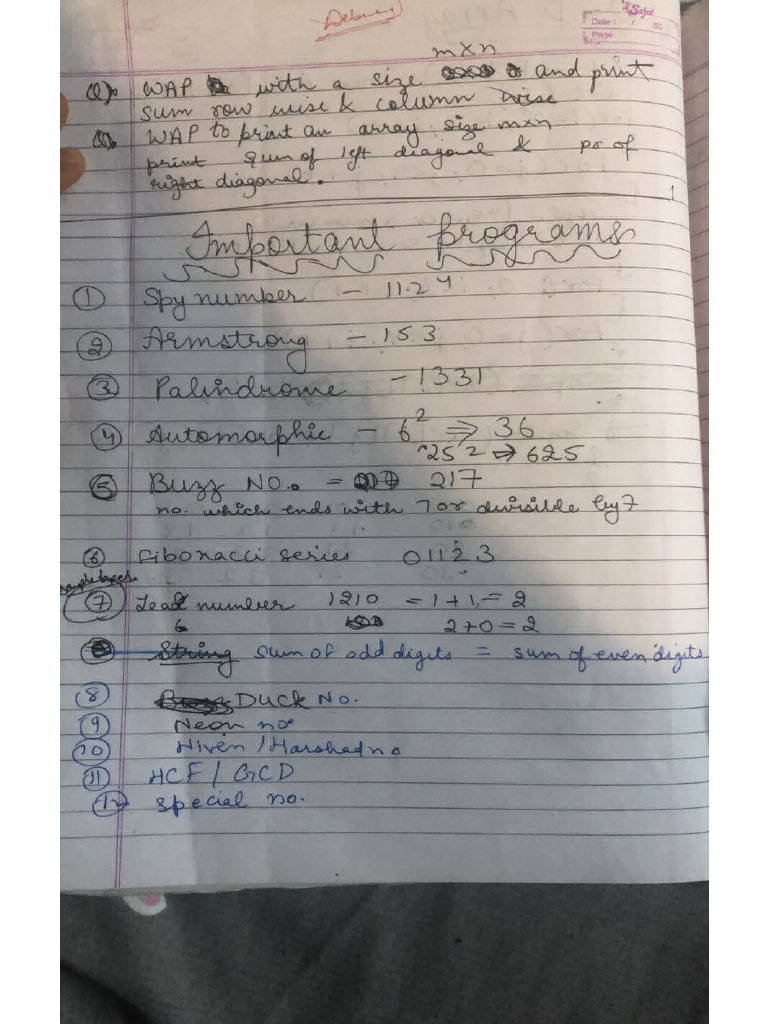 Date : / /20
Page
m×n
Q) WAP with a size and print
sum row wise & column wise
Q) WAP to print an array size m×n
print sum of left diagonal & pr of
right diagonal.
Important programs
① Spy number - 1124
② Armstrong - 153
③ Palindrome - 1331
④ Automorphic - 6² ⇒ 36
25² → 625
⑤ Buzz No. = 217
no. which ends with 7 or divisible by 7
⑥ Fibonacci series 01123
⑦ Lead number 1210 = 1+1 = 2
2+0=2
String sum of odd digits = sum of even digits
⑧ Duck No.
⑨ Neon no.
⑩ Niven / Harshad no
⑪ HCF / GCD
⑫ special no.